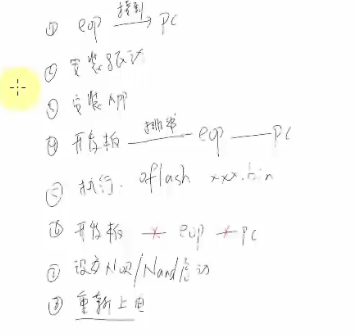 ① eop 接到 → PC
② 安装驱动
③ 安装APP
④ 开发板 排线 eop — PC
⑤ 执行. oflash xxx.bin
⑥ 开发板 × eop × PC
⑦ 设为Nor/Nand启动
⑧ 重新上电